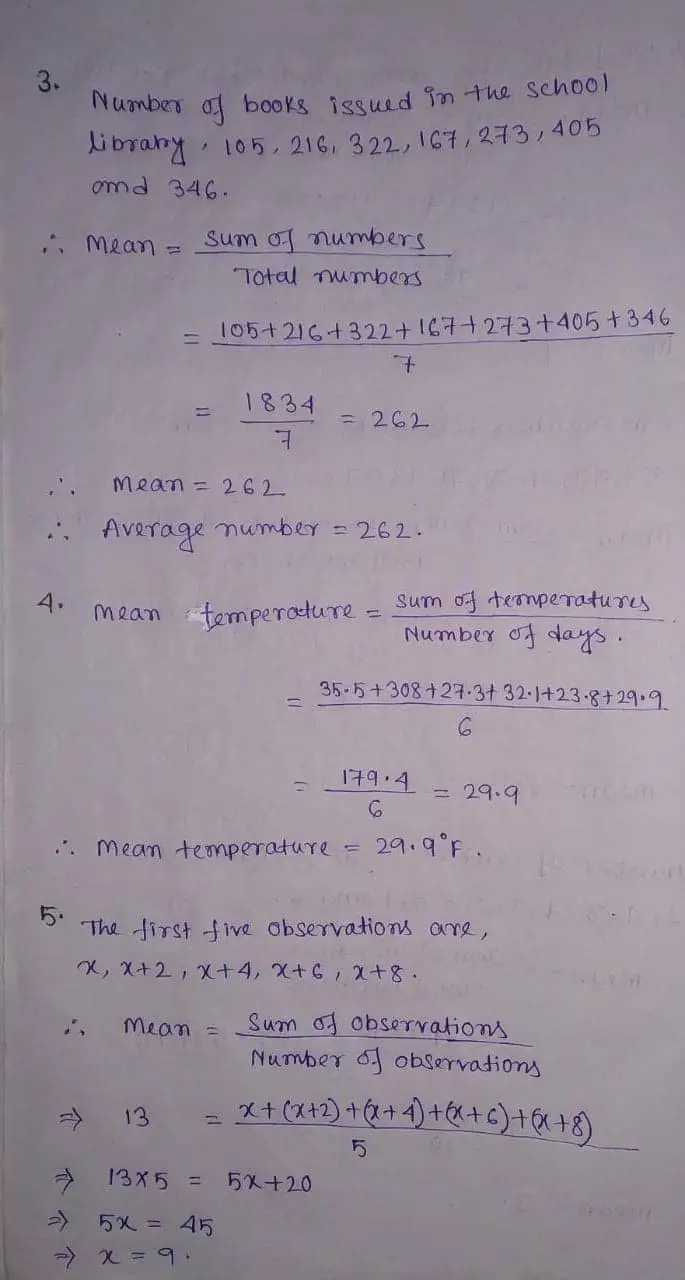 3.
Number of books issued in the school
library, 105, 216, 322, 167, 273, 405
and 346.
∴ Mean = sum of numbers / Total numbers
= 105+216+322+167+273+405+346 / 7
= 1834 / 7 = 262
∴ Mean = 262
∴ Average number = 262.
4. Mean temperature = sum of temperatures / Number of days.
= 35.5+308+27.3+32.1+23.8+29.9 / 6
= 179.4 / 6 = 29.9
∴ Mean temperature = 29.9°F.
5. The first five observations are,
x, x+2, x+4, x+6, x+8.
∴ Mean = Sum of observations / Number of observations
⇒ 13 = x+(x+2)+(x+4)+(x+6)+(x+8) / 5
⇒ 13×5 = 5x+20
⇒ 5x = 45
⇒ x = 9.